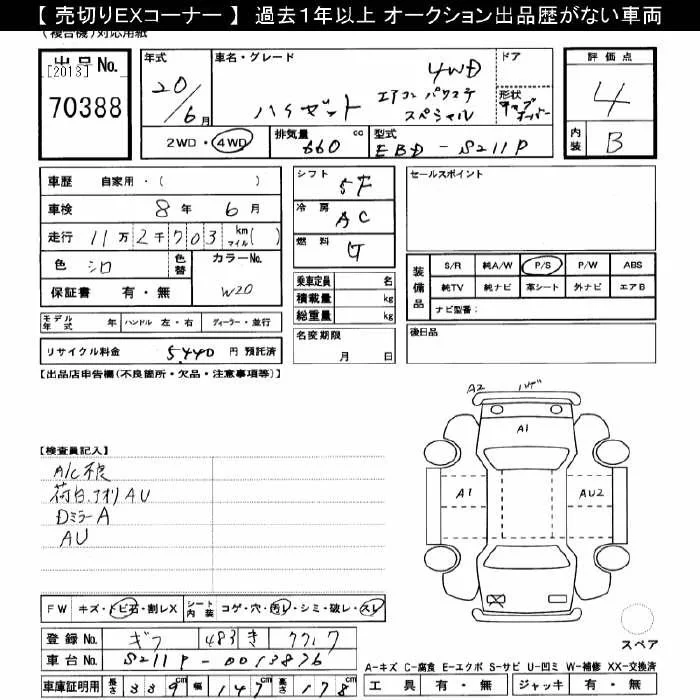 【 売切りEXコーナー 】 過去１年以上 オークション出品歴がない車両
(複合機)対応用紙
出品No. [2013] 70388
年式 20/6月
車名・グレード ハイゼット 4WD エアコン パワステ スペシャル
ドア
形状
評価点 4
内装 B
2WD・4WD
排気量 660 cc
型式 EBD-S211P
車歴 自家用・( )
車検 8年 6月
走行 11万2千703 km マイル( )
色 シロ
色替
カラーNo. W20
保証書 有・無
シフト 5F
冷房 AC
燃料 G
乗車定員 名
積載量 kg
総重量 kg
セールスポイント
装備品 S/R 純A/W P/S P/W ABS
純TV 純ナビ 革シート 外ナビ エアB
ナビ型番：
モデル年式 年 ハンドル 左・右 ディーラー・並行
名変期限 月 日
後日品
リサイクル料金 5,440 円 預託済
【出品店申告欄(不良箇所・欠品・注意事項等)】
A2
A1
A1
AU2
【検査員記入】
A/C不良
荷台、アオリ AU
DミラーA
AU
X
FW キズ・トビ石・割レX
シート内装 コゲ・穴・汚レ・シミ・破レ・スレ
登録No. ギフ 483 き
車台No. S211P-0013876
車庫証明用 長さ 339cm 幅 147cm 高さ 178cm
スペア
A-キズ C-腐食 E-エクボ S-サビ U-凹ミ W-補修 XX-交換済
工具 有・無 ジャッキ 有・無